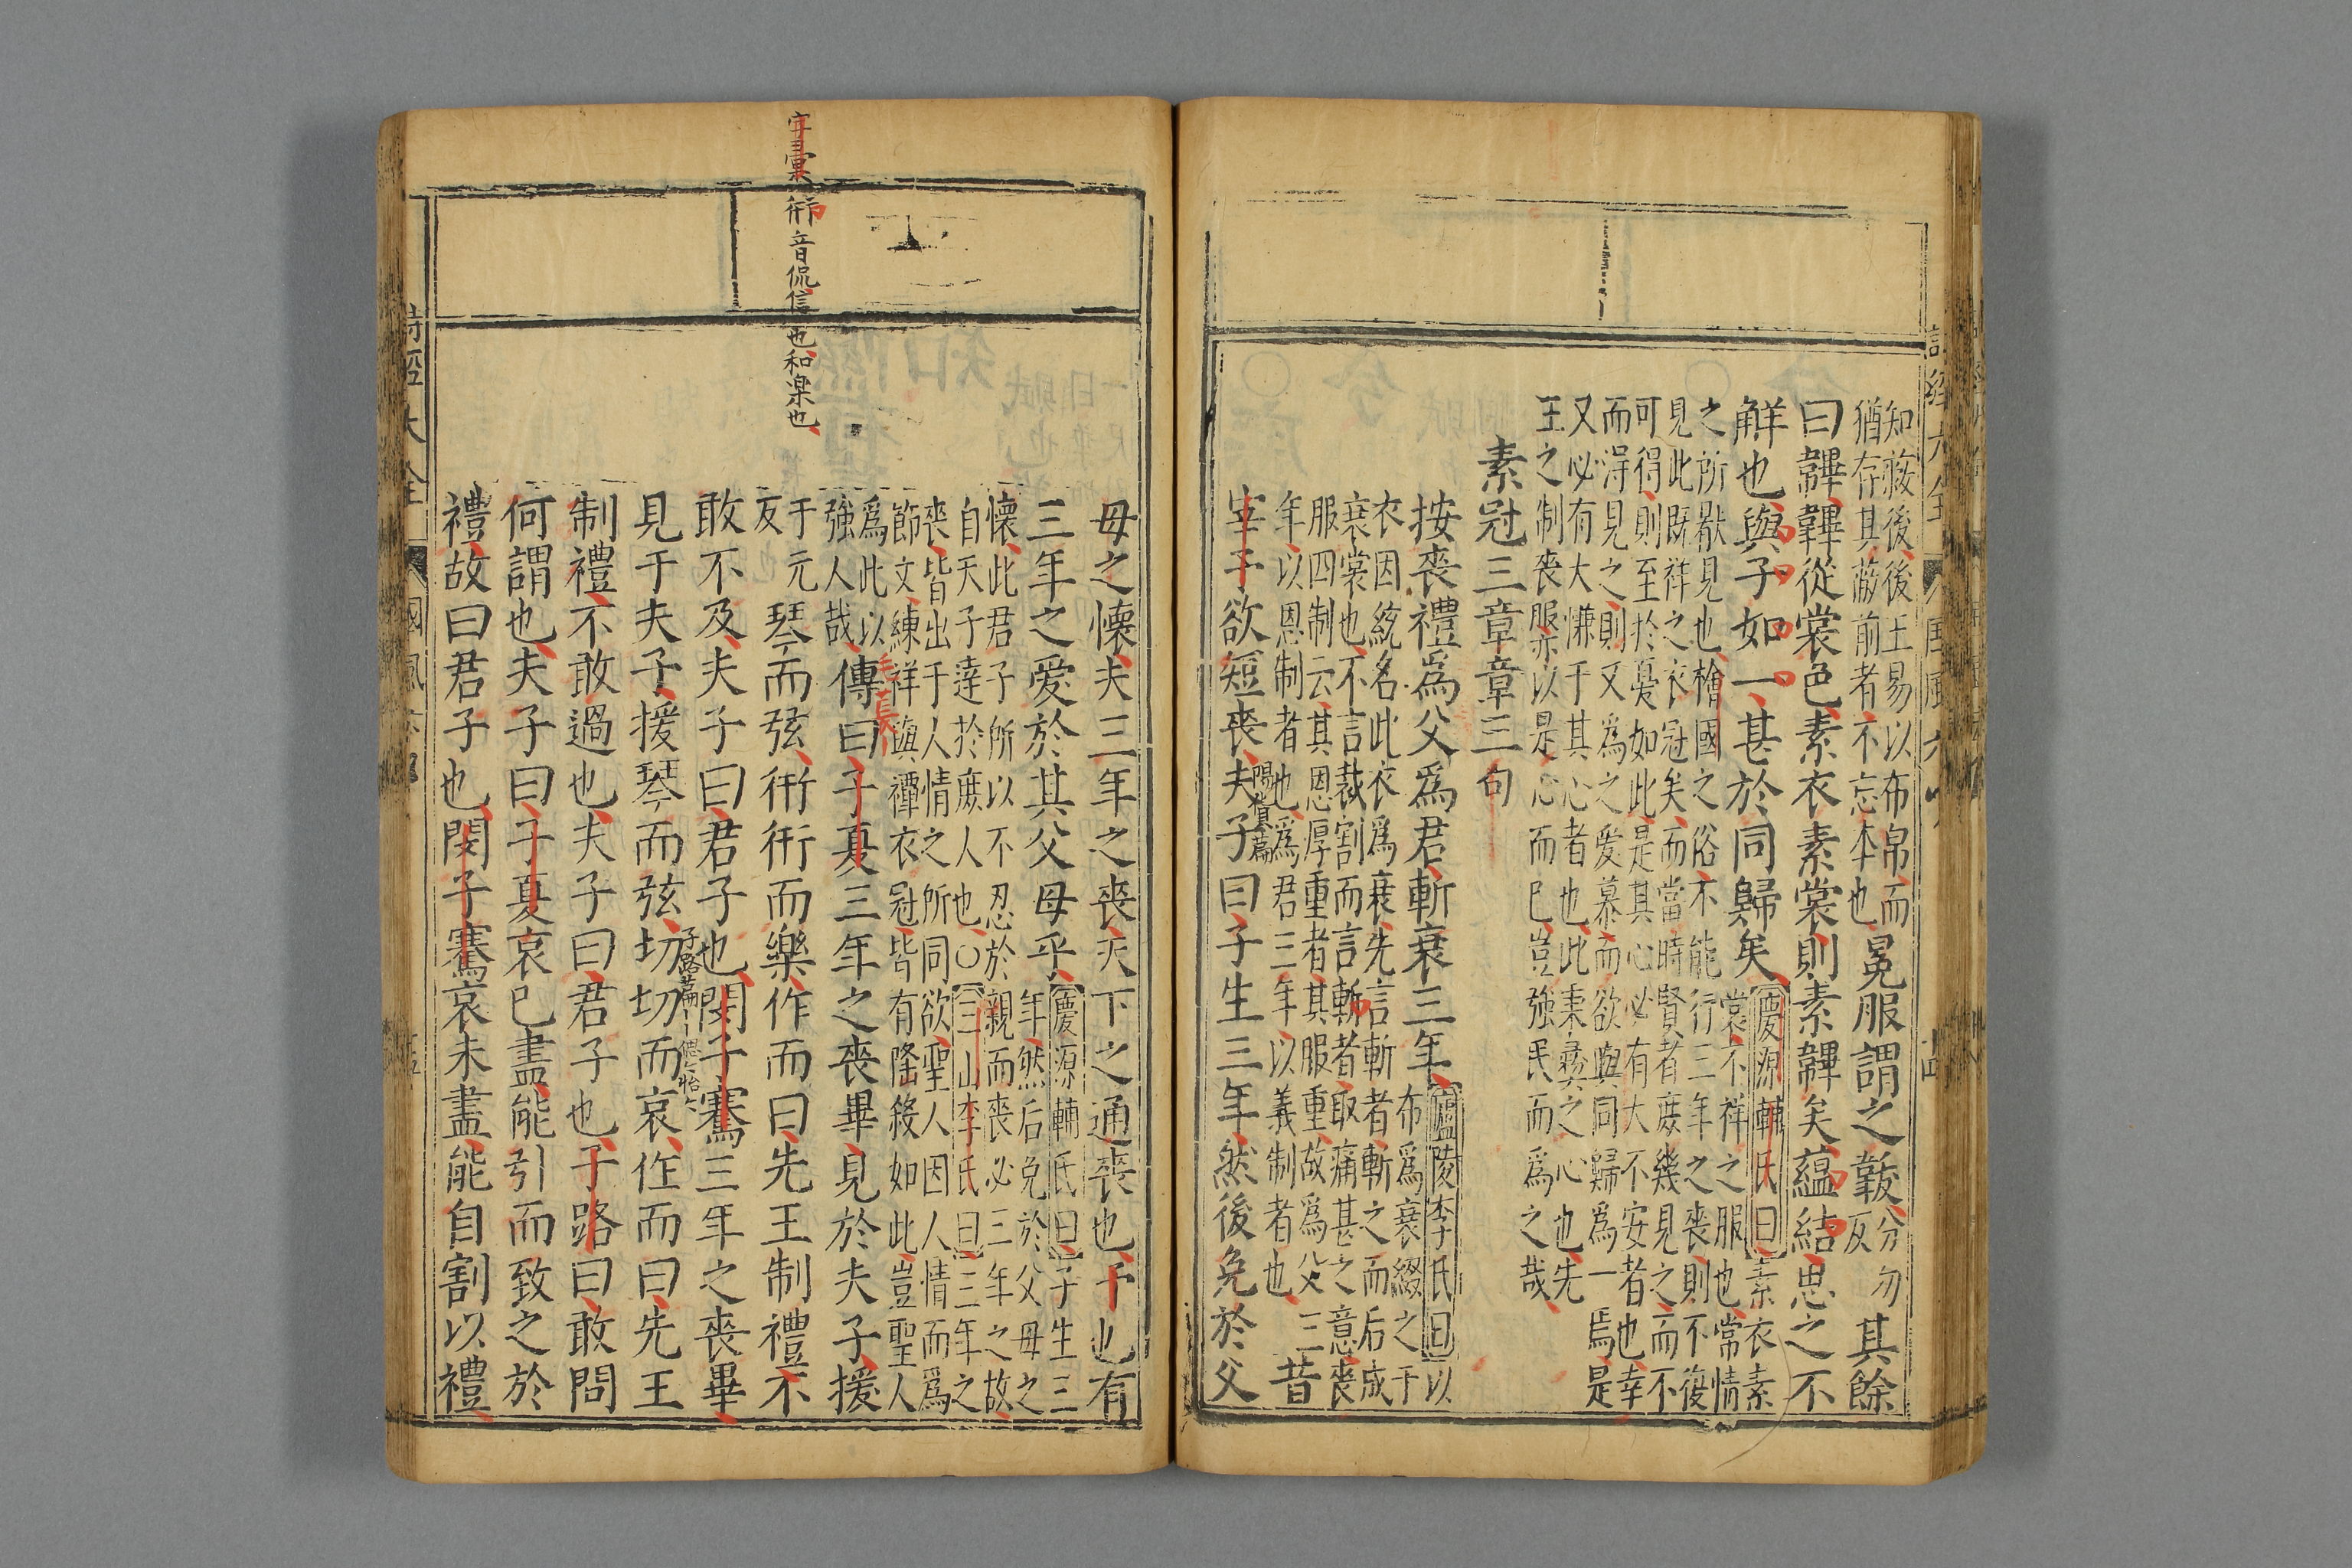 知蔽後後王易以布帛而
猶存其蔽前者不忘本也
冕服謂之韍
分勿
反
其餘
曰韠韠從裳色素衣素裳則素韠矣蘊結思之不
觧也與子如一甚於同歸矣
慶源輔氏曰素衣素
裳不祥之服也常情
之所猒見也檜國之俗不能行三年之喪則不復
見此既祥之衣冠矣而當時賢者庻幾見之而不
可得則至於憂如此是其心必有大不安者也幸
而淂見之則又為之爱慕而欲與同歸為一焉是
又必有大慊于其心者也此秉彛之心也先
王之制喪服亦以是心而已豈強民而為之哉
素冠三章章三句
按喪禮爲父爲君斬衰三年
廬陵李氏曰以
布爲衰綴之于
衣因統名此衣爲衰先言斬者斬之而后成
衰裳也不言裁割而言斬者取痛甚之意喪
服四制云其恩厚重者其服重故爲父三
年以恩制者也爲君三年以義制者也
昔
宰予欲短喪夫子曰子生三年然後免於父
陽貨篇
母之懐夫三年之喪天下之通喪也予也有
三年之爱於其父母乎
慶源輔氏曰子生三
年然后免於父母之
懐此君子所以不忍於親而喪必三年之故
自天子達於庻人也〇三山李氏曰三年之
喪皆出于人情之所同欲聖人因人情而爲
節文練祥與禫衣冠皆有隆殺如此豈聖人
爲此以
強人哉
毛萇
傳曰子夏三年之喪畢見於夫子援
于元
反
琴而弦衎衎而樂作而曰先王制禮不
敢不及夫子曰君子也閔子騫三年之喪畢
見于夫子援琴而弦切切而哀作而曰先王
子路篇
制禮不敢過也夫子曰君子也子路曰敢問
何謂也夫子曰子夏哀已盡能引而致之於
禮故曰君子也閔子騫哀未盡能自割以禮
字彙衎音侃信也和楽也
詩經大全
國風